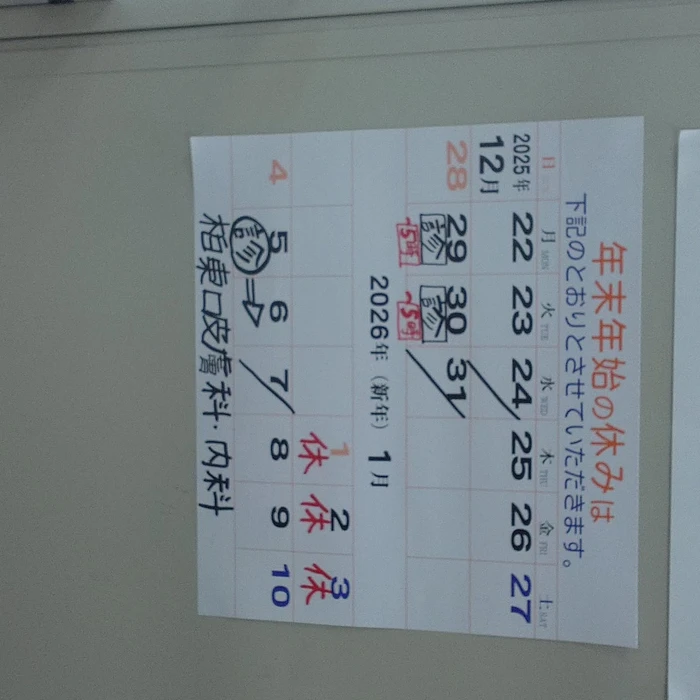 年末年始の休みは
下記のとおりとさせていただきます。
日 月 火 水 木 金 土
MON TUE WED THU FRI SAT
2025年 12月 22 23 24 25 26 27
28 29 30 31
診 診
~5時 ~5時
2026年 (新年) 1月
1 2 3
休 休 休
4 5 6 7 8 9 10
診 ⇒
柏東口皮膚科・内科